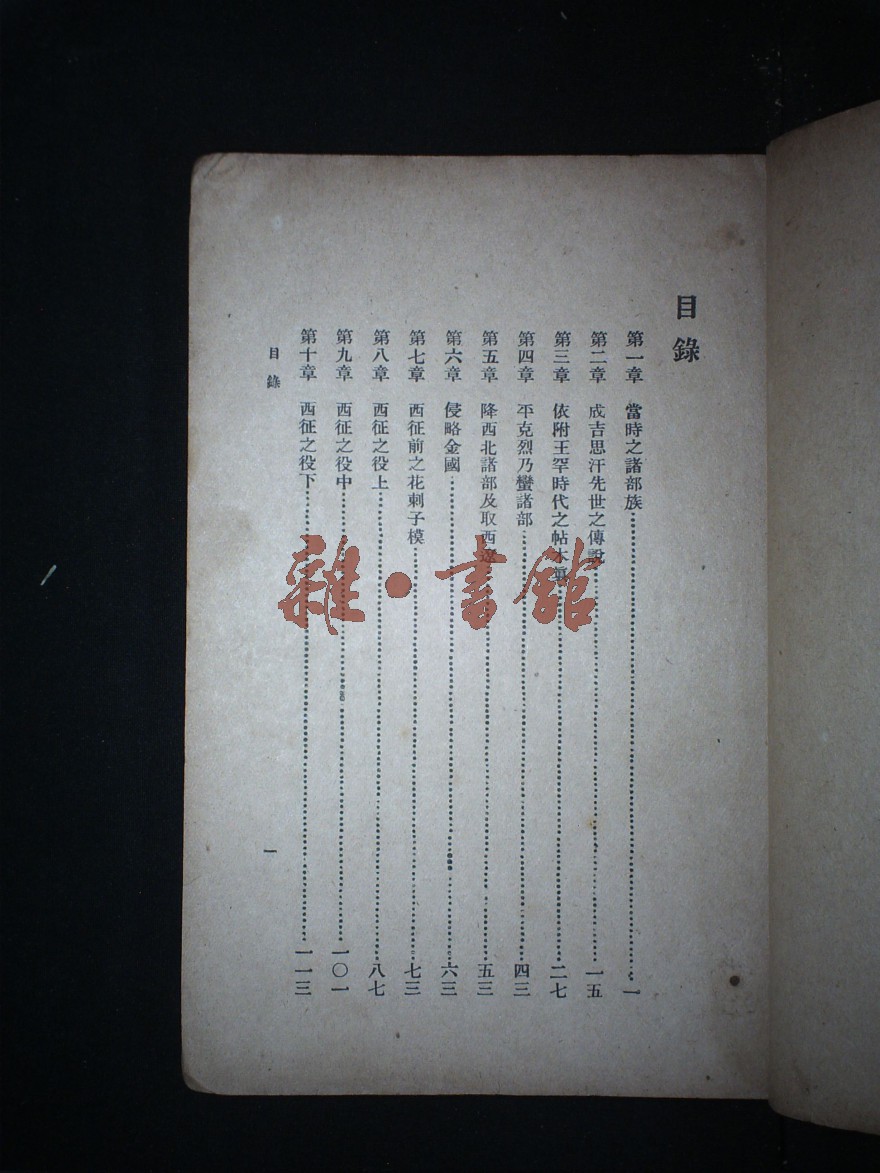 目錄
第一章 當時之諸部族 一
第二章 成吉思汗先世之傳說 一五
第三章 依附王罕時代之帖木真 二七
第四章 平克烈乃蠻諸部 四三
第五章 降西北諸部及取西遼 五三
第六章 侵略金國 六三
第七章 西征前之花剌子模 七三
第八章 西征之役上 八七
第九章 西征之役中 一〇一
第十章 西征之役下 一一三
目錄
一
雜·書館